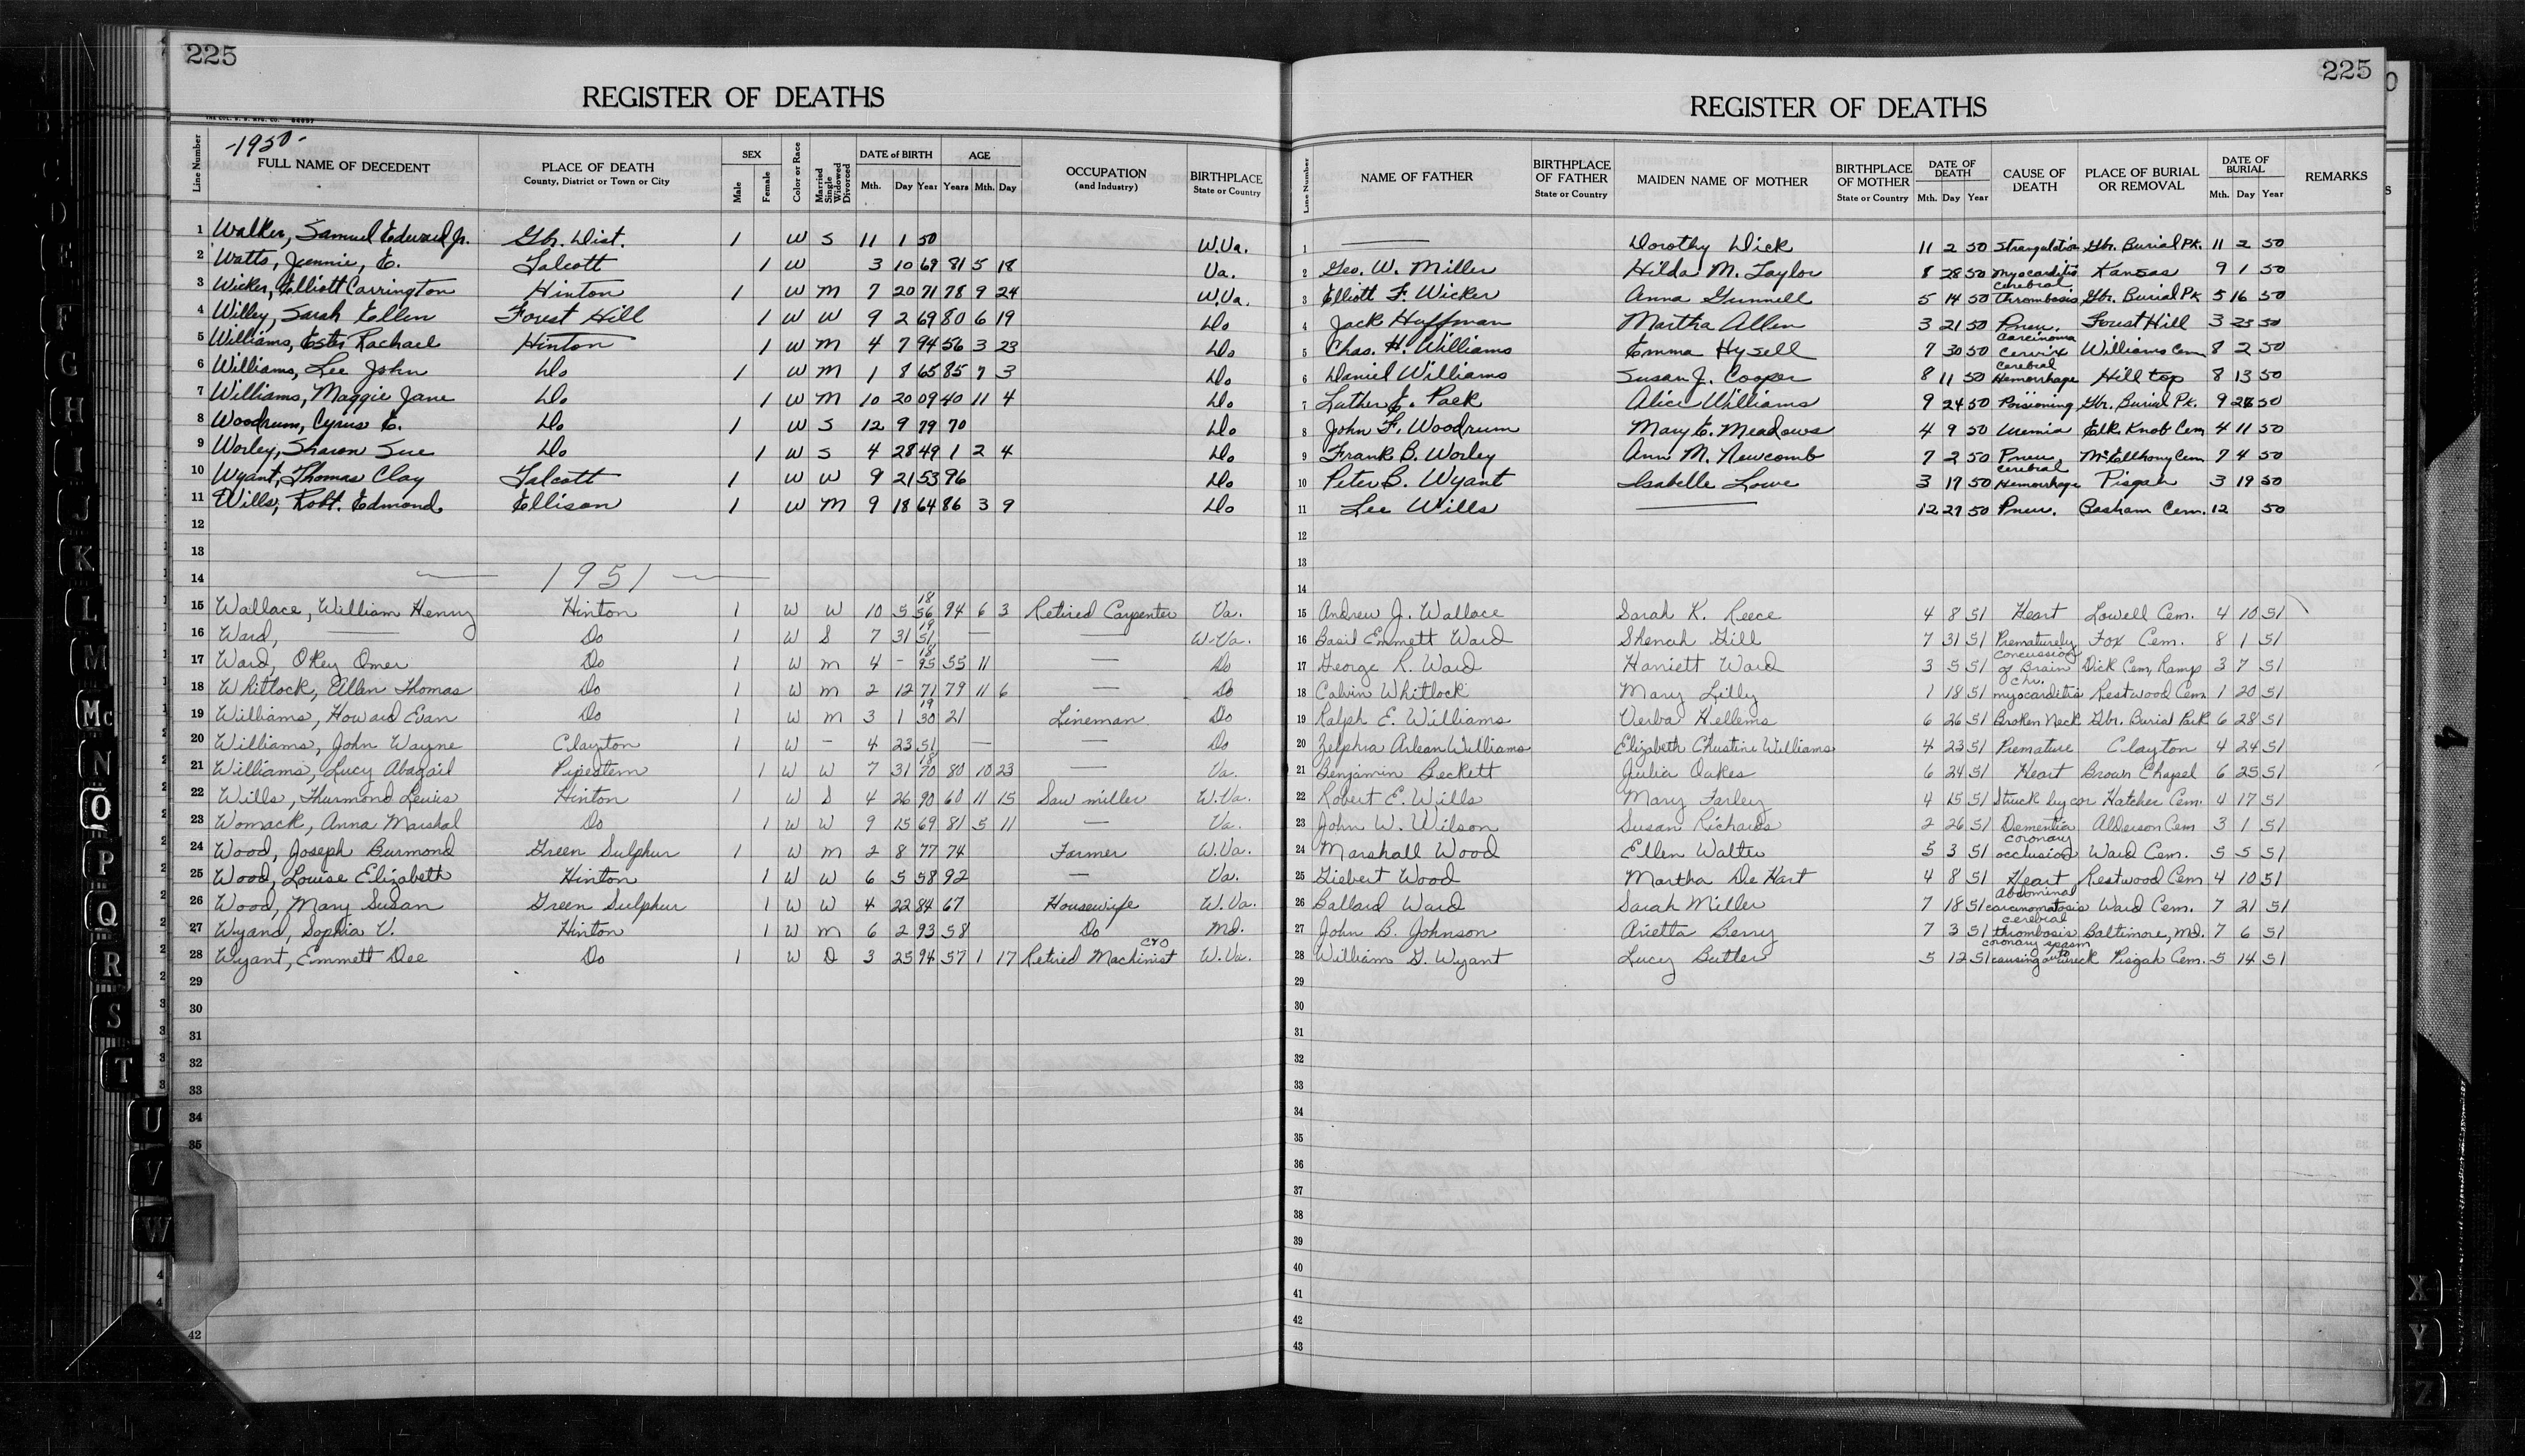 225
REGISTER OF DEATHS
THE COL. B. B. MFG. CO.
-1950-
Line Number FULL NAME OF DECEDENT PLACE OF DEATH County, District or Town or City SEX Male Female Color or Race Married Single Widowed Divorced DATE of BIRTH Mth. Day Year AGE Years Mth. Day OCCUPATION (and Industry) BIRTHPLACE State or Country
1 Walker, Samuel Edward Jr. Gbr. Dist. 1 W S 11 1 50 W.Va.
2 Watts, Jennie, E. Talcott 1 W 3 10 69 81 5 18 Va.
3 Wicker, Elliott Carrington Hinton 1 W M 7 20 71 78 9 24 W.Va.
4 Willey, Sarah Ellen Forest Hill 1 W W 9 2 69 80 6 19 Do
5 Williams, Ester Rachael Hinton 1 W M 4 7 94 56 3 23 Do
6 Williams, Lee John Do 1 W M 1 8 65 85 7 3 Do
7 Williams, Maggie Jane Do 1 W M 10 20 09 40 11 4 Do
8 Woodrum, Cyrus E. Do 1 W S 12 9 79 70 Do
9 Worley, Sharon Sue Do 1 W S 4 28 49 1 2 4 Do
10 Wyant, Thomas Clay Talcott 1 W W 9 21 53 96 Do
11 Wills, Robt. Edmond Ellison 1 W M 9 18 64 86 3 9 Do
12
13
14 — 1951 —
15 Wallace, William Henry Hinton 1 W W 10 5 18 56 94 6 3 Retired Carpenter Va.
16 Ward, — Do 1 W S 7 31 19 51 — — W.Va.
17 Ward, OKey Omer Do 1 W M 4 - 18 95 55 11 — Do
18 Whitlock, Allen Thomas Do 1 W M 2 12 71 79 11 6 — Do
19 Williams, Howard Evan Do 1 W M 3 1 19 30 21 Lineman Do
20 Williams, John Wayne Clayton 1 W - 4 23 51 — — Do
21 Williams, Lucy Abagail Pipestem 1 W W 7 31 18 70 80 10 23 — Va.
22 Wills, Thurmond Lewis Hinton 1 W S 4 26 90 60 11 15 Saw miller W.Va.
23 Womack, Anna Marshal Do 1 W W 9 15 69 81 5 11 — Va.
24 Wood, Joseph Burmond Green Sulphur 1 W M 2 8 77 74 Farmer W.Va.
25 Wood, Louise Elizabeth Hinton 1 W W 6 5 58 92 — Va.
26 Wood, Mary Susan Green Sulphur 1 W W 4 22 84 67 Housewife W.Va.
27 Wyand, Sophia V. Hinton 1 W M 6 2 93 58 Do Md.
28 Wyant, Emmett Dee Do 1 W D 3 25 94 57 1 17 Retired Machinist C&O W.Va.
29
30
31
32
33
34
35
42
225
REGISTER OF DEATHS
Line Number NAME OF FATHER BIRTHPLACE OF FATHER State or Country MAIDEN NAME OF MOTHER BIRTHPLACE OF MOTHER State or Country DATE OF DEATH Mth. Day Year CAUSE OF DEATH PLACE OF BURIAL OR REMOVAL DATE OF BURIAL Mth. Day Year REMARKS
1 — Dorothy Dick 11 2 50 Strangulation Gbr. Burial Pk. 11 2 50
2 Geo. W. Miller Hilda M. Taylor 8 28 50 Myocarditis Kansas 9 1 50
3 Elliott F. Wicker Anna Gunnell 5 14 50 Cerebral Thrombosis Gbr. Burial Pk 5 16 50
4 Jack Huffman Martha Allen 3 21 50 Pneu. Forest Hill 3 23 50
5 Chas. H. Williams Emma Hysell 7 30 50 Carcinoma Cervix Williams Cem 8 2 50
6 Daniel Williams Susan J. Cooper 8 11 50 Cerebral Hemorrhage Hill top 8 13 50
7 Luther E. Pack Alice Williams 9 24 50 Poisioning Gbr. Burial Pk. 9 26 50
8 John F. Woodrum Mary E. Meadows 4 9 50 Uremia Elk Knob Cem 4 11 50
9 Frank B. Worley Ann M. Newcomb 7 2 50 Pneu. McEllhony Cem 7 4 50
10 Peter B. Wyant Isabelle Lowe 3 17 50 Cerebral Hemorrhage Pisgah 3 19 50
11 Lee Wills — 12 27 50 Pneu. Basham Cem. 12 50
12
13
14
15 Andrew J. Wallace Sarah K. Reece 4 8 51 Heart Lowell Cem. 4 10 51
16 Basil Emmett Ward Shenah Gill 7 31 51 Prematurely Fox Cem. 8 1 51
17 George R. Ward Harriett Ward 3 5 51 Concussion of Brain Dick Cem, Ramp 3 7 51
18 Calvin Whitlock Mary Lilly 1 18 51 Chr. myocarditis Restwood Cem 1 20 51
19 Ralph E. Williams Verba Hellems 6 26 51 Broken Neck Gbr. Burial Park 6 28 51
20 Zelphra Arlean Williams Elizabeth Christine Williams 4 23 51 Premature Clayton 4 24 51
21 Benjamin Beckett Julia Oakes 6 24 51 Heart Brown Chapel 6 25 51
22 Robert E. Wills Mary Farley 4 15 51 Struck by car Hatcher Cem. 4 17 51
23 John W. Wilson Susan Richards 2 26 51 Dementia Alderson Cem 3 1 51
24 Marshall Wood Ellen Walter 5 3 51 coronary occlusion Ward Cem. 5 5 51
25 Giebert Wood Martha De Hart 4 8 51 Heart Restwood Cem 4 10 51
26 Ballard Ward Sarah Miller 7 18 51 Abdominal carcinomatosis Ward Cem. 7 21 51
27 John B. Johnson Arietta Berry 7 3 51 cerebral thrombosis Baltimore, Md. 7 6 51
28 William G. Wyant Lucy Butler 5 12 51 coronary spasm causing auto wreck Pisgah Cem. 5 14 51
29
30
31
32
33
34
35
36
37
38
39
40
41
42
43
B
C
D
E
F
G
H
I
J
K
L
M
Mc
N
O
P
Q
R
S
T
U
V
W
X
Y
Z
4